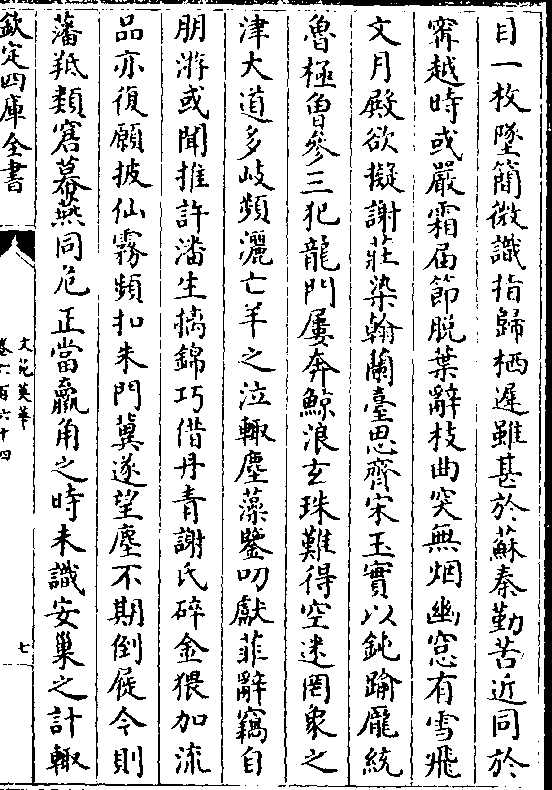 目一枚墜簡微識指歸栖遲雖甚於蘇秦勤苦近同於
甯越時或嚴霜届節脱葉辭枝曲突無烟幽窓有雪飛
文月殿欲擬謝莊染翰蘭臺思齊宋玉實以鈍踰龐統
魯極曾參三犯龍門屢奔鯨浪玄珠難得空迷罔象之
津大道多岐頻灑亡羊之泣輙塵藻鑒叨獻菲辭竊自
朋游或聞推許潘生摛錦巧借丹青謝氏碎金猥加流
品亦復願披仙霧頻扣朱門冀遂望塵不期倒屣今則
藩羝類窘幕燕同危正當羸角之時未識安巢之計輙
欽定四庫全書
文苑英華
卷六百六十四
七